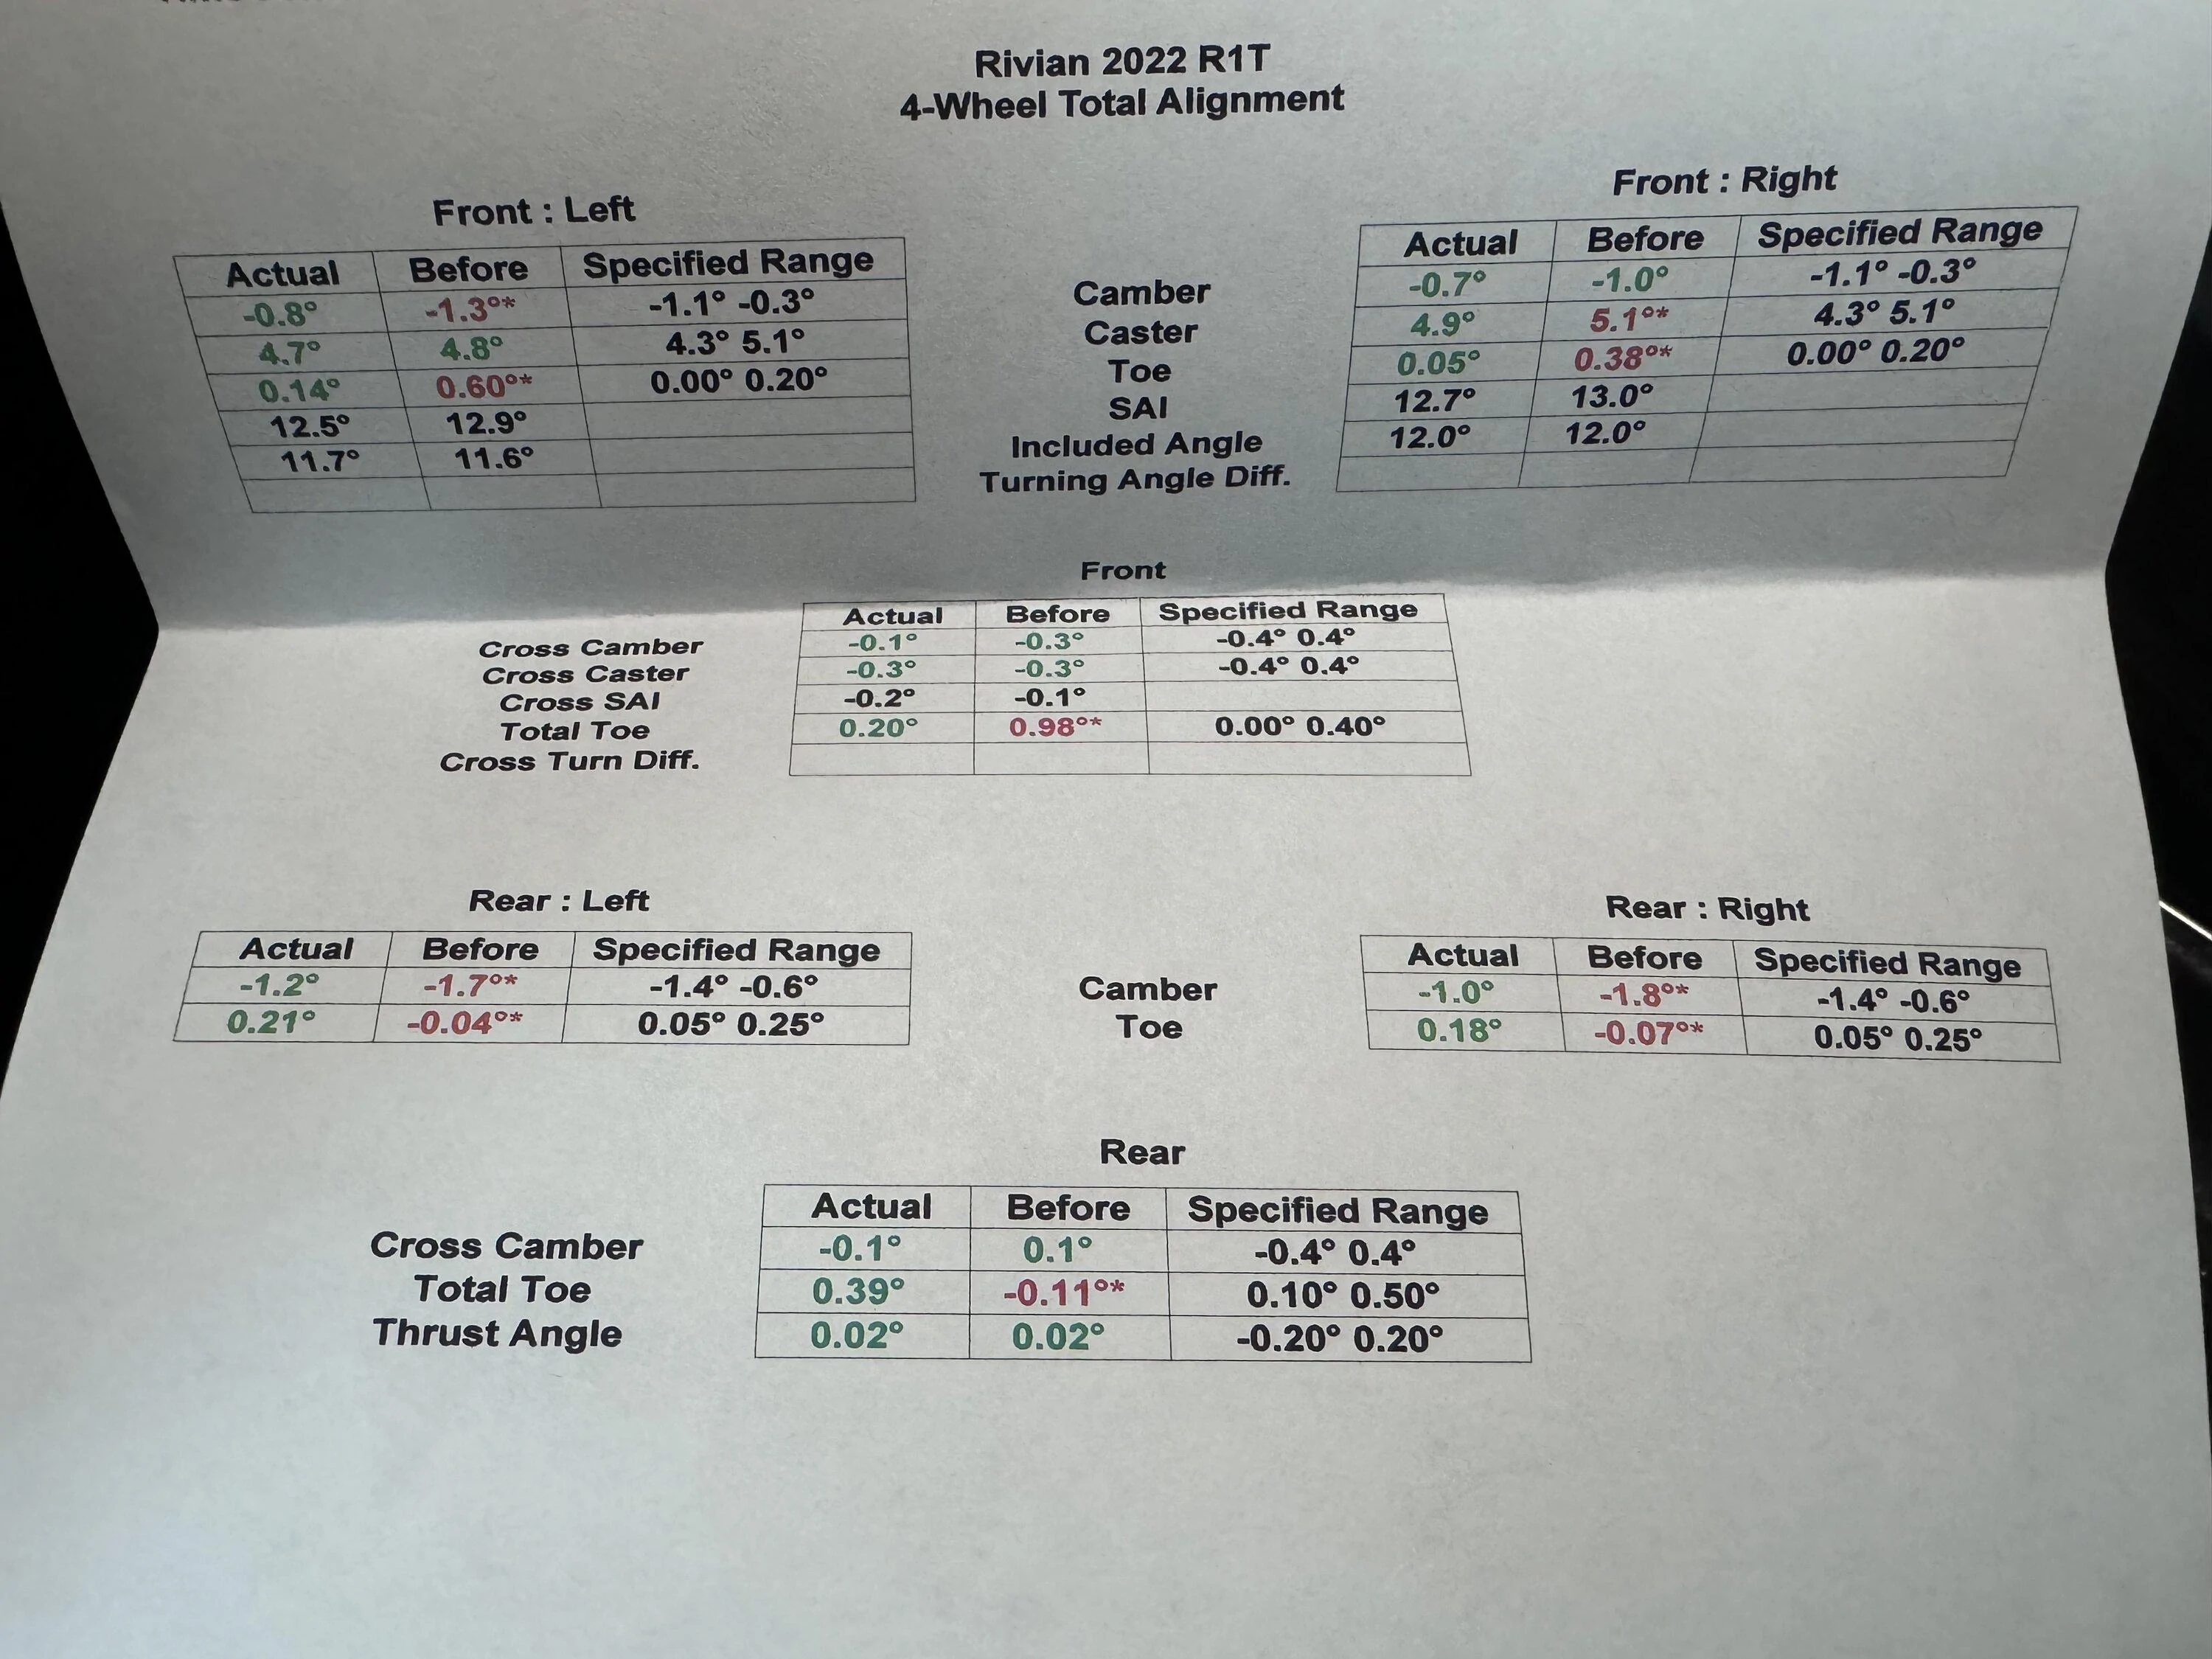 Rivian 2022 R1T
4-Wheel Total Alignment
Front : Left
Actual Before Specified Range
-0.8° -1.3°* -1.1° -0.3°
4.7° 4.8° 4.3° 5.1°
0.14° 0.60°* 0.00° 0.20°
12.5° 12.9°
11.7° 11.6°
Camber
Caster
Toe
SAI
Included Angle
Turning Angle Diff.
Front : Right
Actual Before Specified Range
-0.7° -1.0° -1.1° -0.3°
4.9° 5.1°* 4.3° 5.1°
0.05° 0.38°* 0.00° 0.20°
12.7° 13.0°
12.0° 12.0°
Front
Actual Before Specified Range
Cross Camber -0.1° -0.3° -0.4° 0.4°
Cross Caster -0.3° -0.3° -0.4° 0.4°
Cross SAI -0.2° -0.1°
Total Toe 0.20° 0.98°* 0.00° 0.40°
Cross Turn Diff.
Rear : Left
Actual Before Specified Range
-1.2° -1.7°* -1.4° -0.6°
0.21° -0.04°* 0.05° 0.25°
Camber
Toe
Rear : Right
Actual Before Specified Range
-1.0° -1.8°* -1.4° -0.6°
0.18° -0.07°* 0.05° 0.25°
Rear
Actual Before Specified Range
Cross Camber -0.1° 0.1° -0.4° 0.4°
Total Toe 0.39° -0.11°* 0.10° 0.50°
Thrust Angle 0.02° 0.02° -0.20° 0.20°